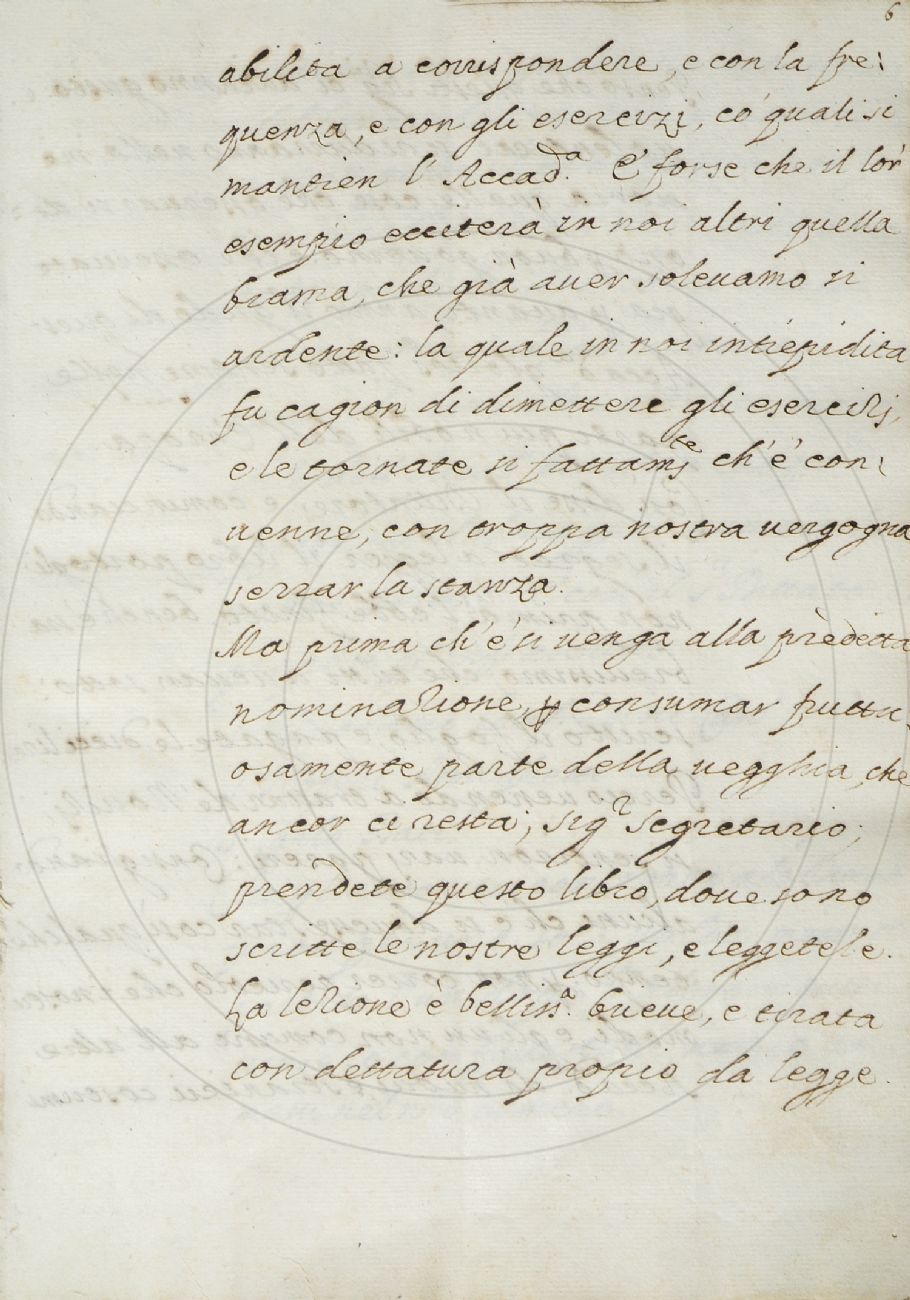 6
abilita a corrispondere, e con la fre:
quenza, e con gli esercizj, co' quali si
mantien l'Accad.ª E' forse che il lor
esempio ecciterà in noi altri quella
brama, che già aver solevamo sì
ardente: la quale in noi intiepidita
fu cagion di dimettere gli esercizj,
e le tornate sì fattam.te ch' e' con:
venne, con troppa nostra vergogna
serrar la stanza.
Ma prima ch' e' si venga alla predetta
nominazione, ꝑ consumar fruttu:
osamente parte della vegghia, che
ancor ci resta; sig.r segretario,
prendete questo libro, dove sono
scritte le nostre leggi, e leggetele.
La lezione è belliss.ª breve, e tirata
con dettatura propio da legge.